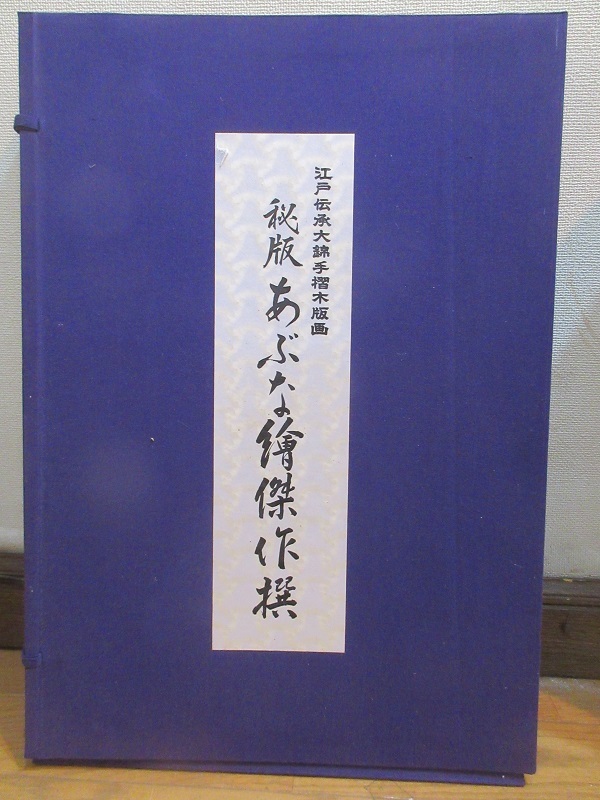 江戸伝承大錦手摺木版画
秘版あぶな繪傑作撰